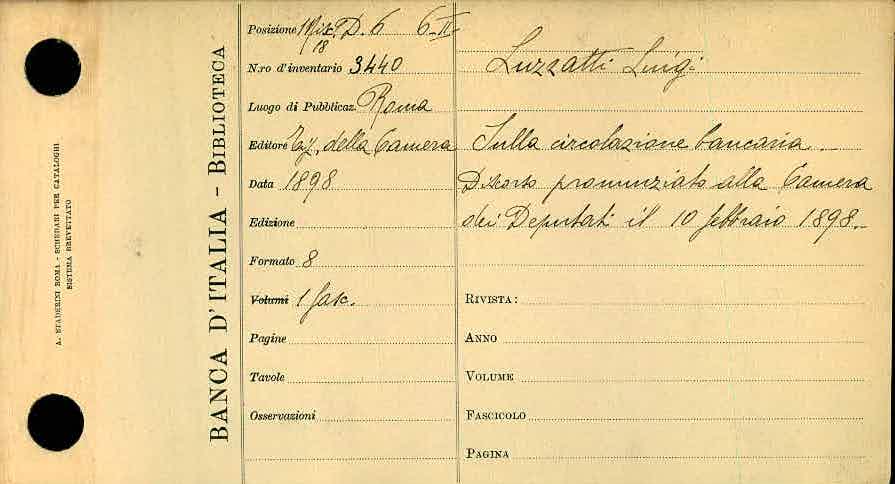 A. STADERINI ROMA - SCHEDARI PER CATALOGHI
SISTEMA BREVETTATO
BANCA D'ITALIA - BIBLIOTECA
Posizione Misc. D. 6 6-II
18
N.ro d'inventario 3440
Luogo di Pubblicaz. Roma
Editore Tip. della Camera
Data 1898
Edizione
Formato 8
Volumi 1 fasc.
Pagine
Tavole
Osservazioni
Luzzatti Luigi
Sulla circolazione bancaria.
Discorso pronunziato alla Camera
dei Deputati il 10 febbraio 1898.
RIVISTA:
ANNO
VOLUME
FASCICOLO
PAGINA